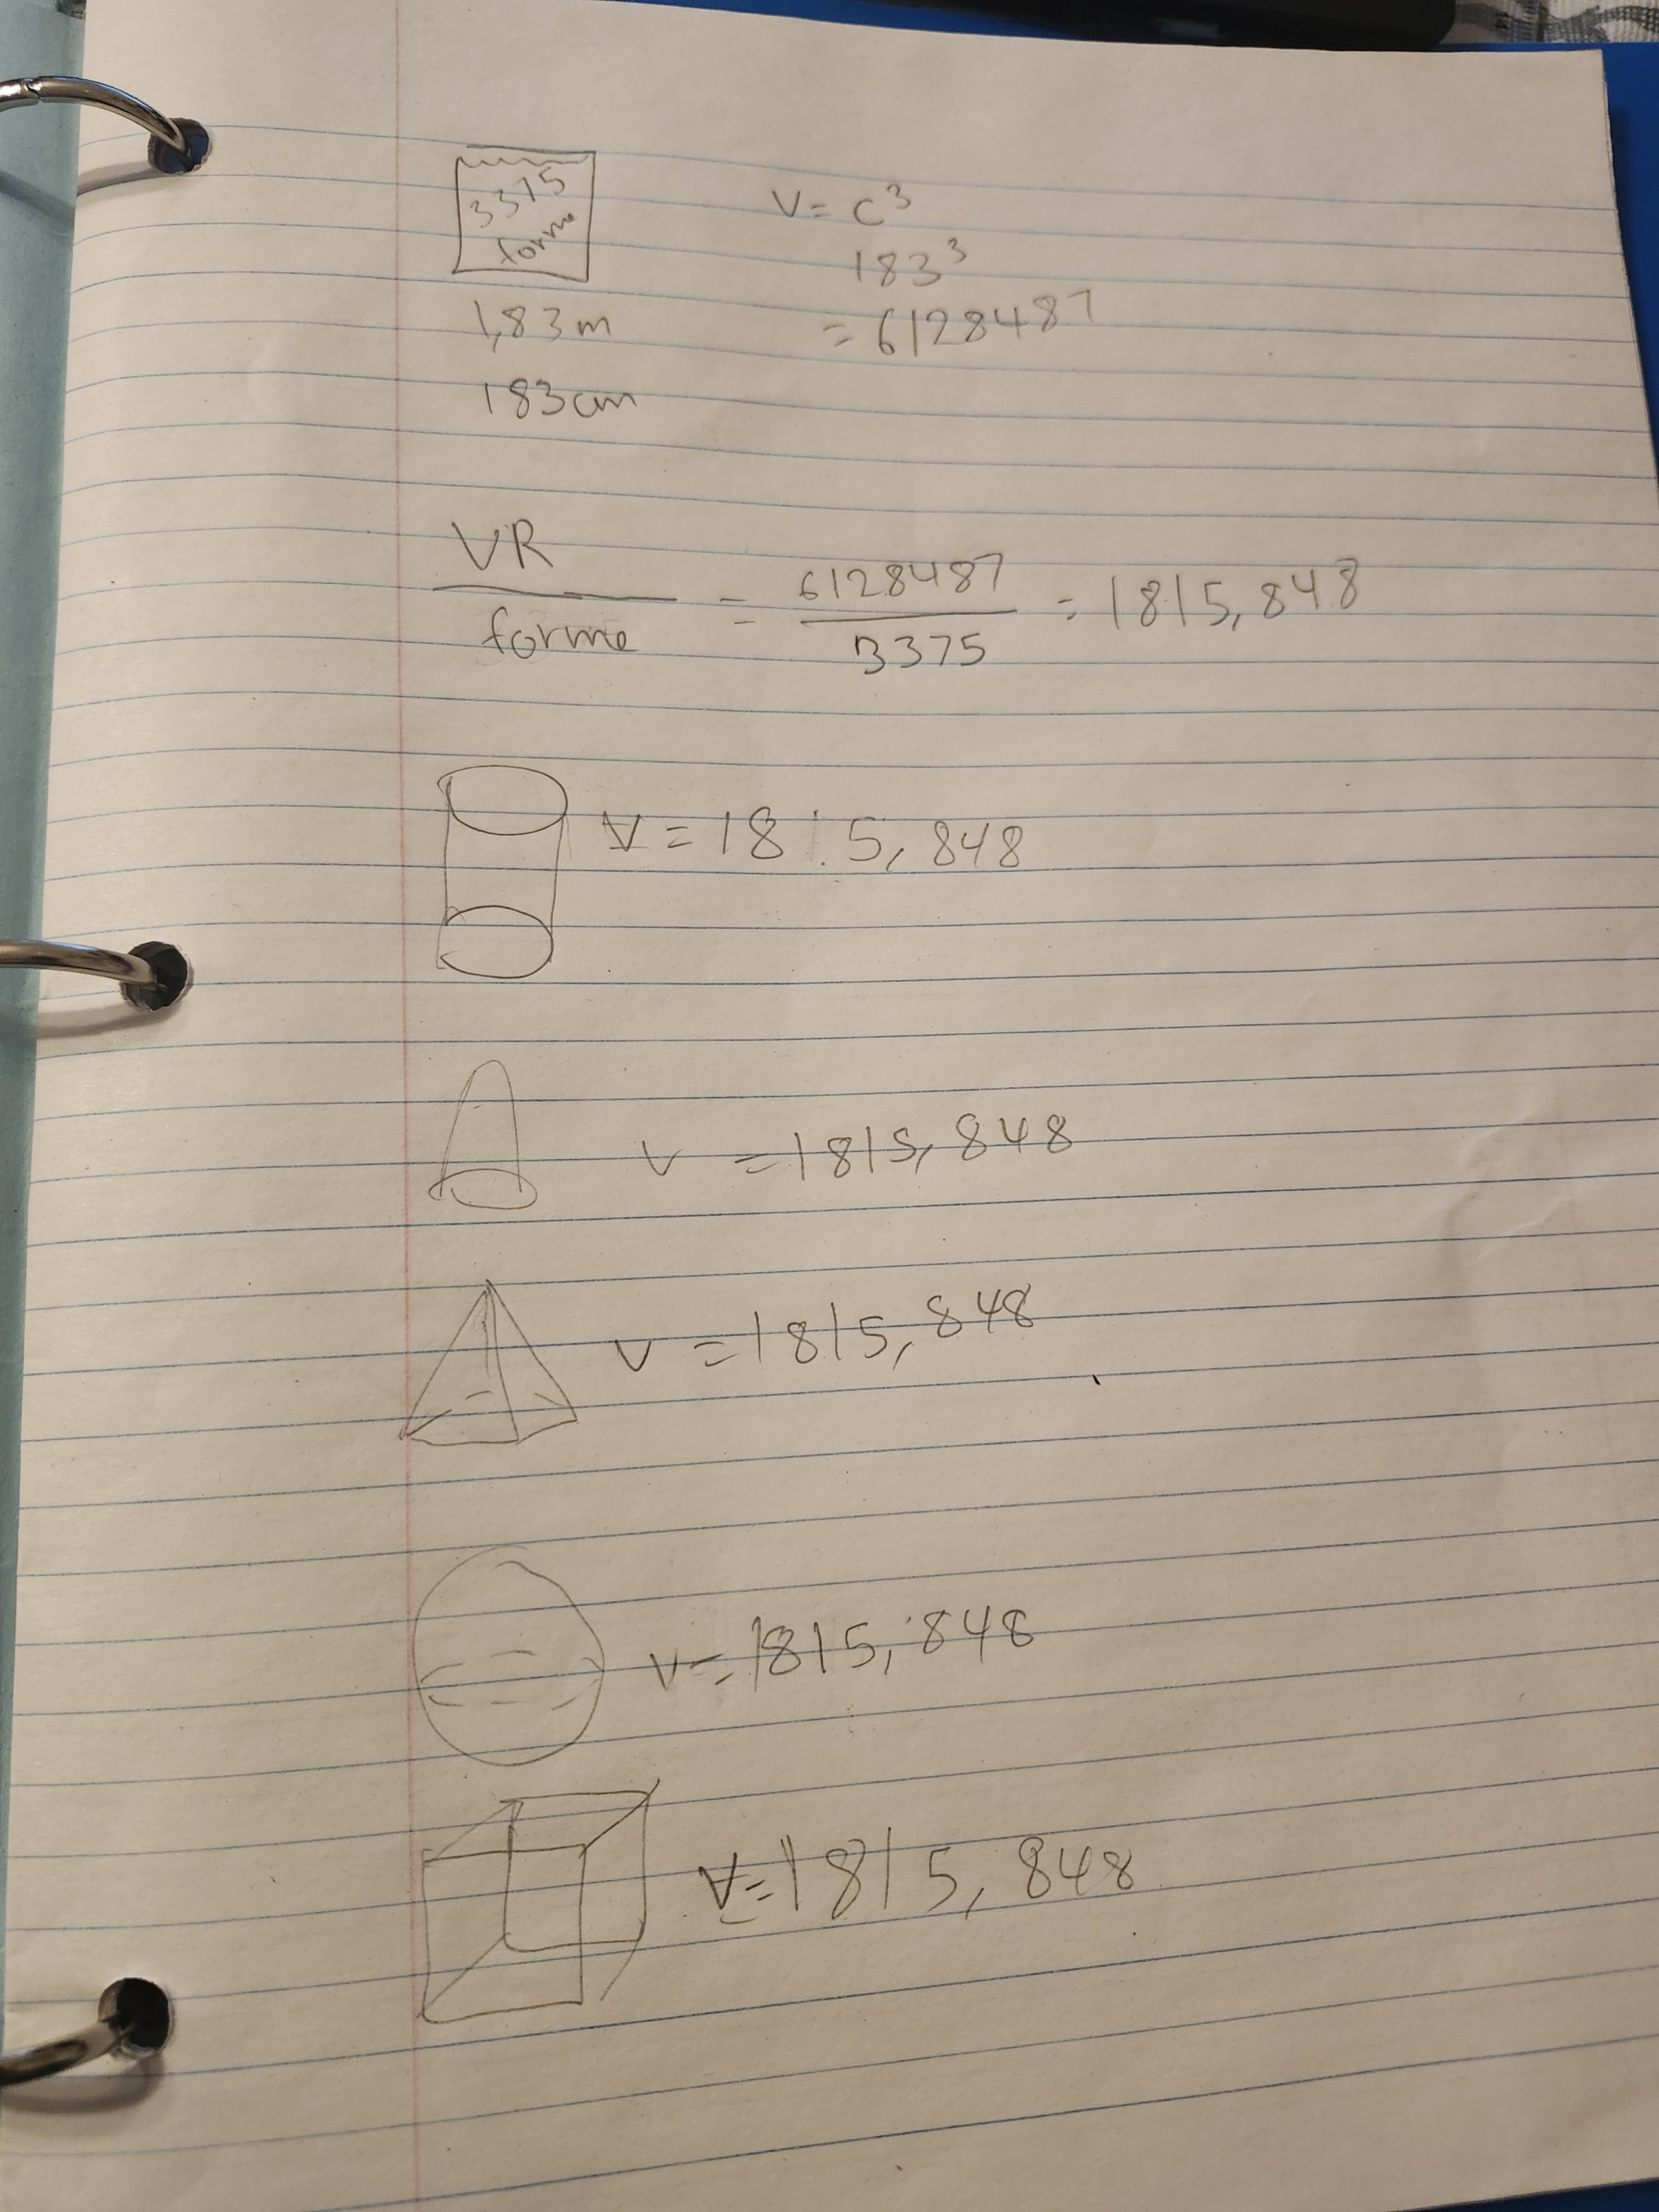 3375
forme
1,83m
183cm
V = c³
183³
= 6128487
VR / forme = 6128487 / 3375 = 1815,848
V = 18 5,848
V = 1815,848
V = 1815,848
V = 1815,848
V = 1815,848